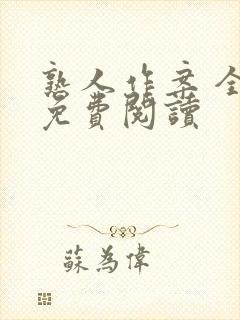 熟人作案全
免費閱讀
蘇為偉